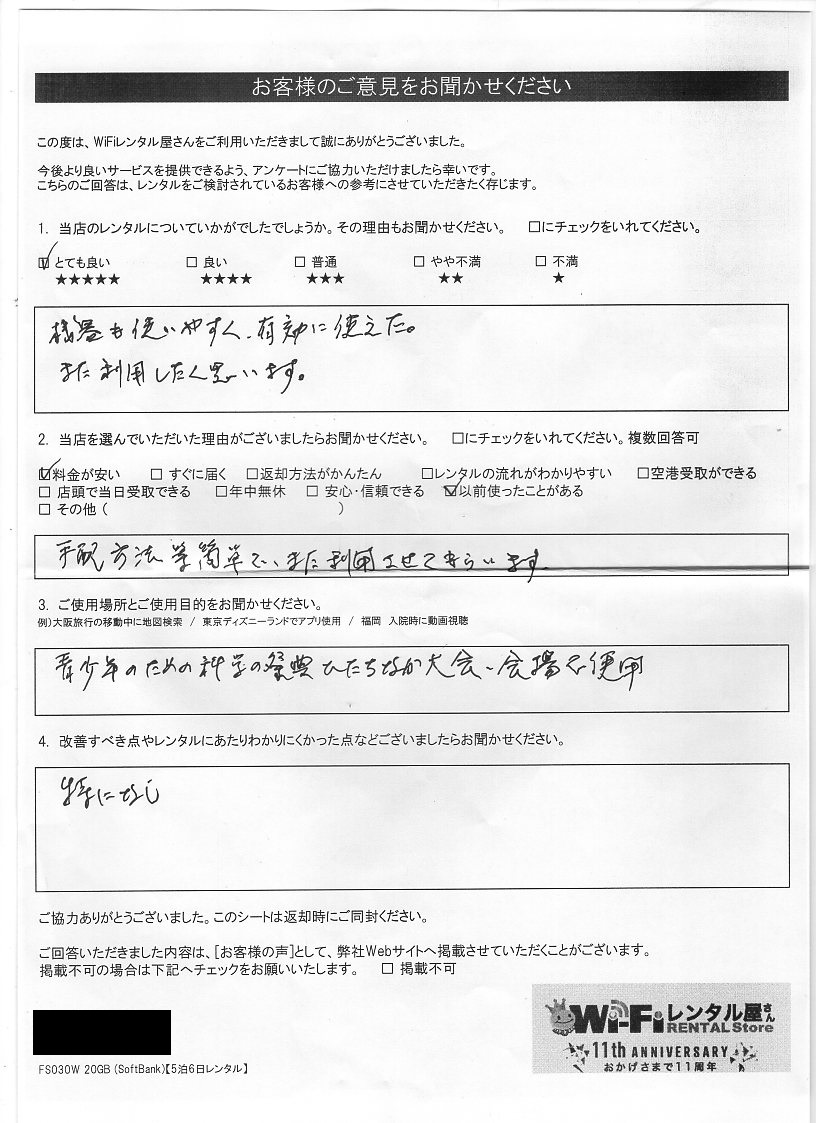 お客様のご意見をお聞かせください
この度は、WiFiレンタル屋さんをご利用いただきまして誠にありがとうございました。
今後より良いサービスを提供できるよう、アンケートにご協力いただけましたら幸いです。
こちらのご回答は、レンタルをご検討されているお客様への参考にさせていただきたく存じます。
1. 当店のレンタルについていかがでしたでしょうか。その理由もお聞かせください。 □にチェックをいれてください。
☑ とても良い □ 良い □ 普通 □ やや不満 □ 不満
★★★★★ ★★★★ ★★★ ★★ ★
機器も使いやすく、有効に使えた。
また利用したく思います。
2. 当店を選んでいただいた理由がございましたらお聞かせください。 □にチェックをいれてください。複数回答可
☑料金が安い □ すぐに届く □返却方法がかんたん □レンタルの流れがわかりやすい □空港受取ができる
□ 店頭で当日受取できる □年中無休 □ 安心・信頼できる ☑以前使ったことがある
□ その他 ( )
手配方法等簡単で、また利用させてもらいます
3. ご使用場所とご使用目的をお聞かせください。
例)大阪旅行の移動中に地図検索 / 東京ディズニーランドでアプリ使用 / 福岡 入院時に動画視聴
青少年のための科学の祭典ひたちなか大会、会場で使用
4. 改善すべき点やレンタルにあたりわかりにくかった点などございましたらお聞かせください。
特になし
ご協力ありがとうございました。このシートは返却時にご同封ください。
ご回答いただきました内容は、[お客様の声]として、弊社Webサイトへ掲載させていただくことがございます。
掲載不可の場合は下記へチェックをお願いいたします。 □ 掲載不可
Wi-Fiレンタル屋さん
RENTAL Store
11th ANNIVERSARY
おかげさまで11周年
FS030W 20GB (SoftBank)【5泊6日レンタル】